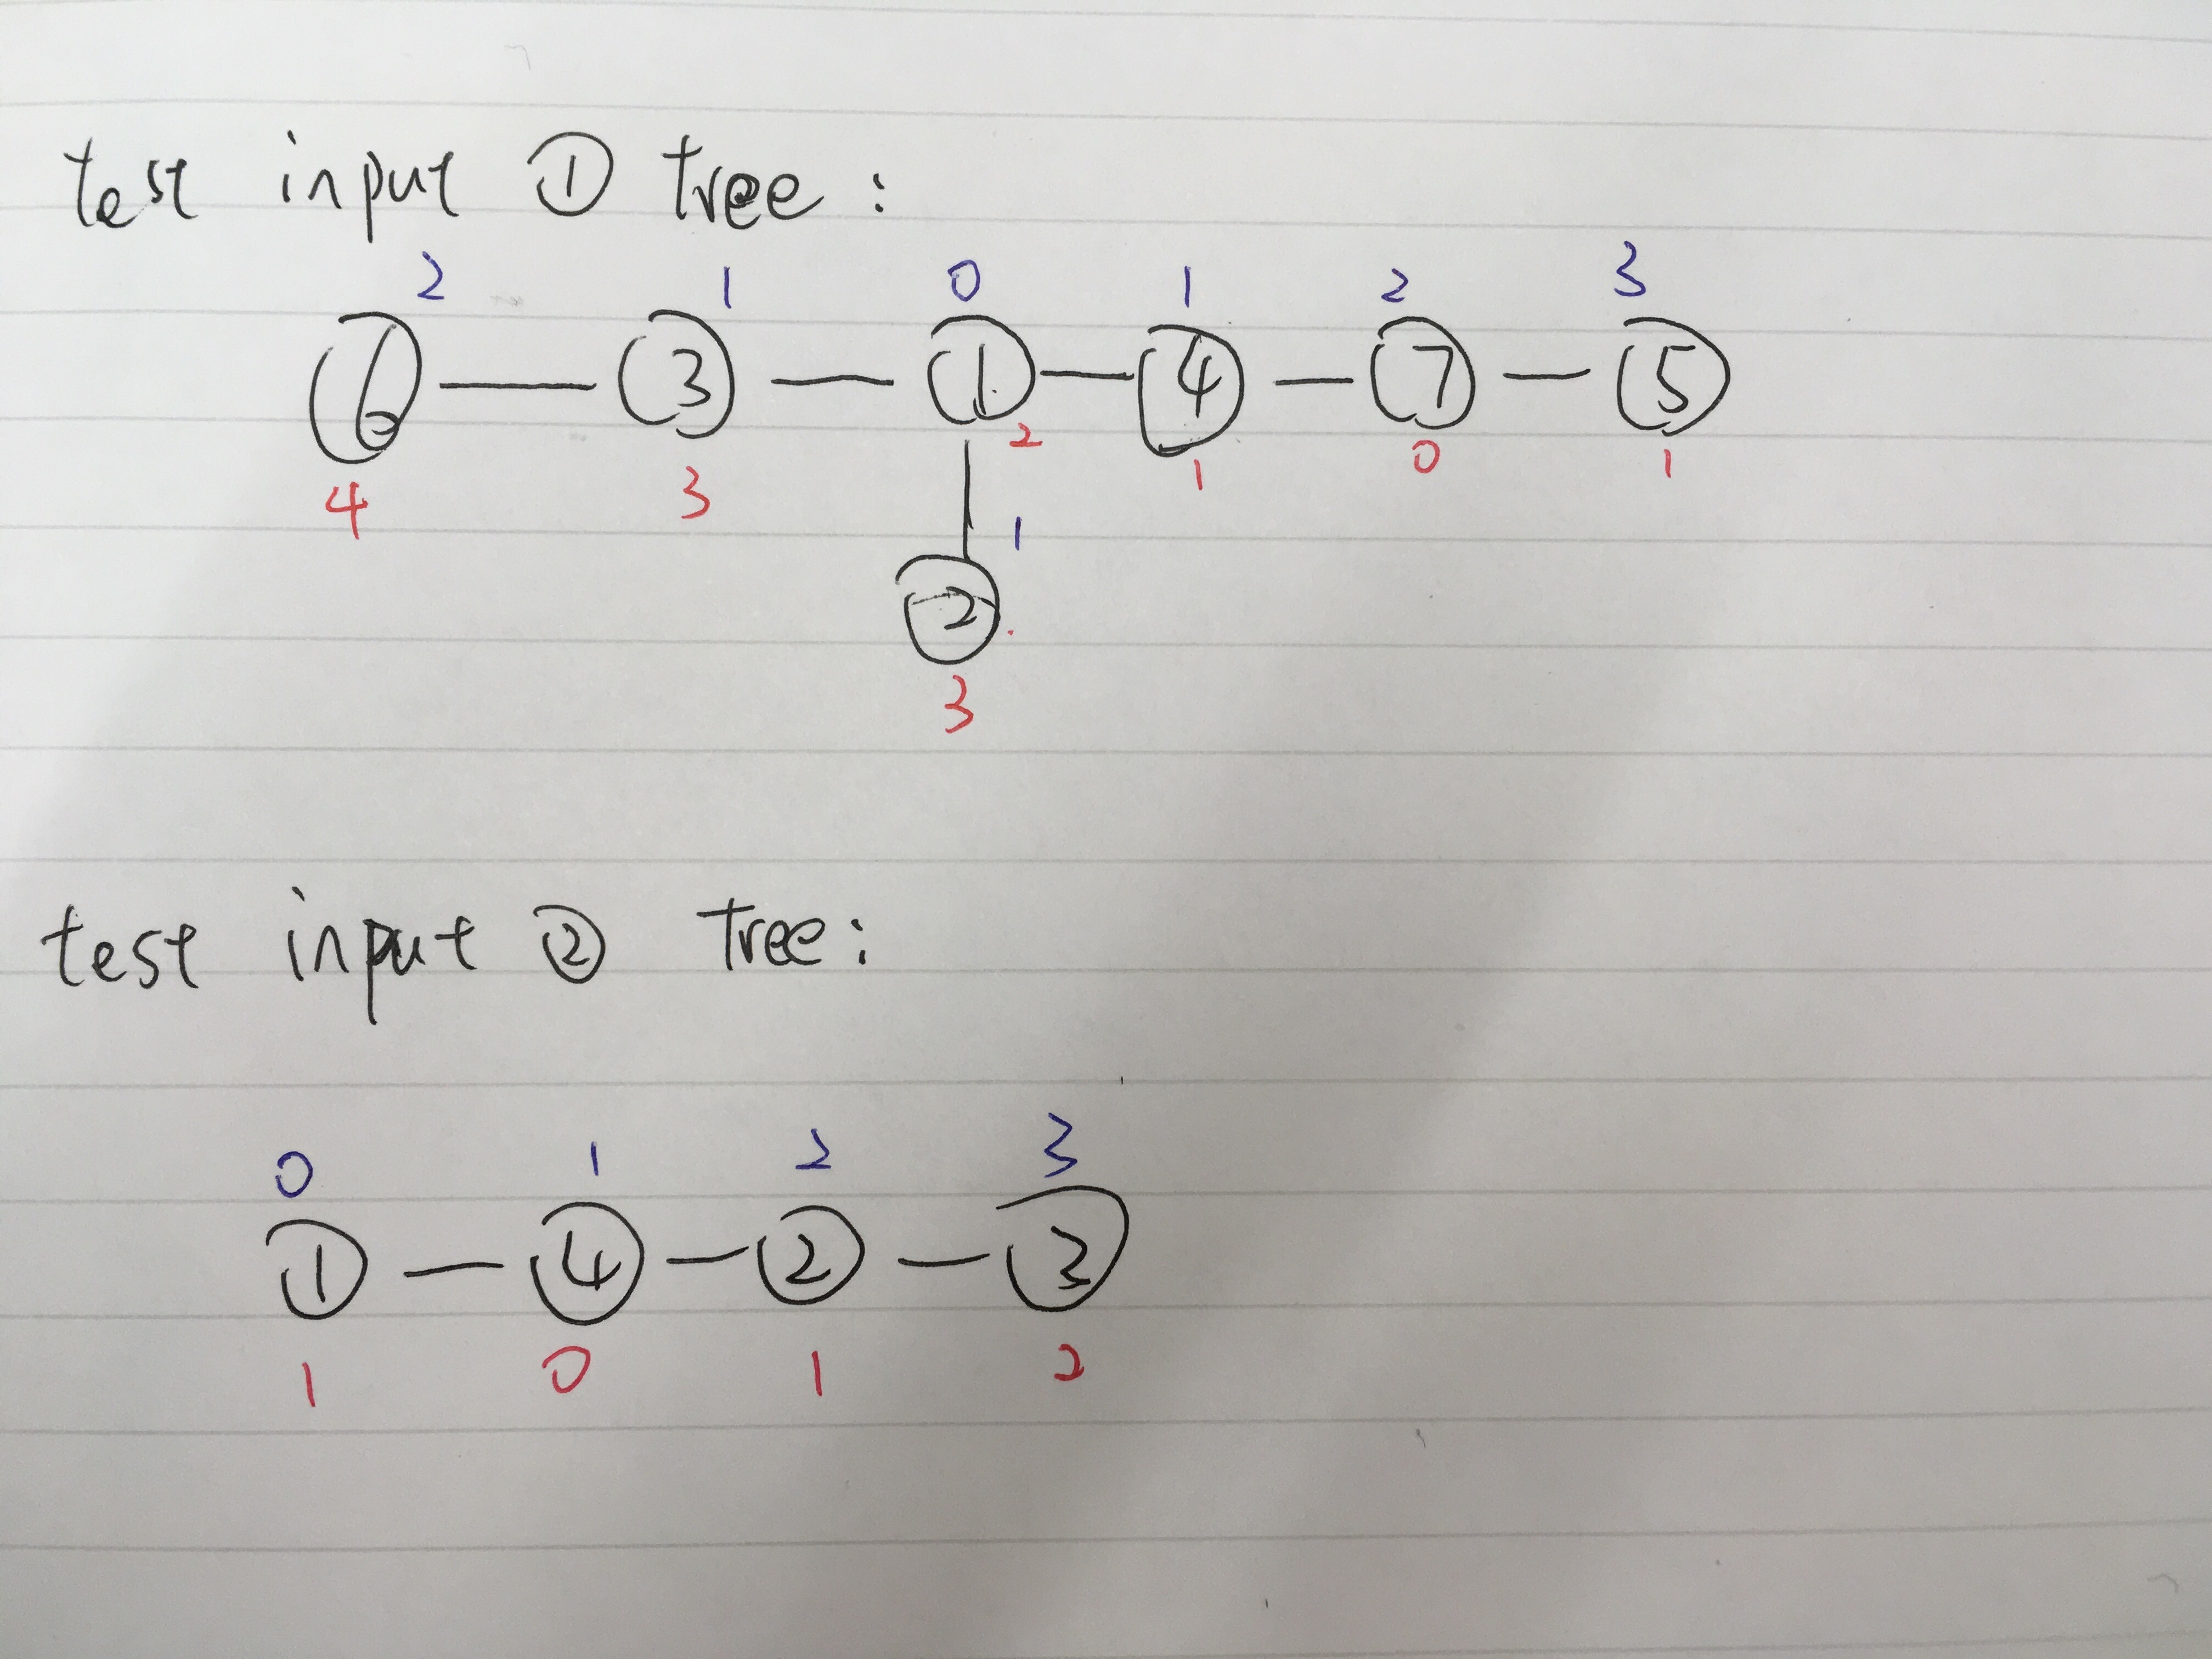 test input ① tree:
2 1 0 1 2 3
6 — 3 — 1 — 4 — 7 — 5
4 3 2 1 0 1
1
2
3
test input ② Tree:
0 1 2 3
1 — 4 — 2 — 3
1 0 1 2